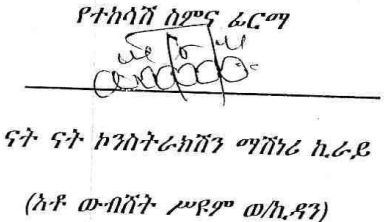 የተከሳሽ ስምና ፊርማ
ናት ናት ኮንስትራክሽን ማሽነሪ ኪራይ
(አቶ ውብሸት ሥዩም ወ/ኪዳን)